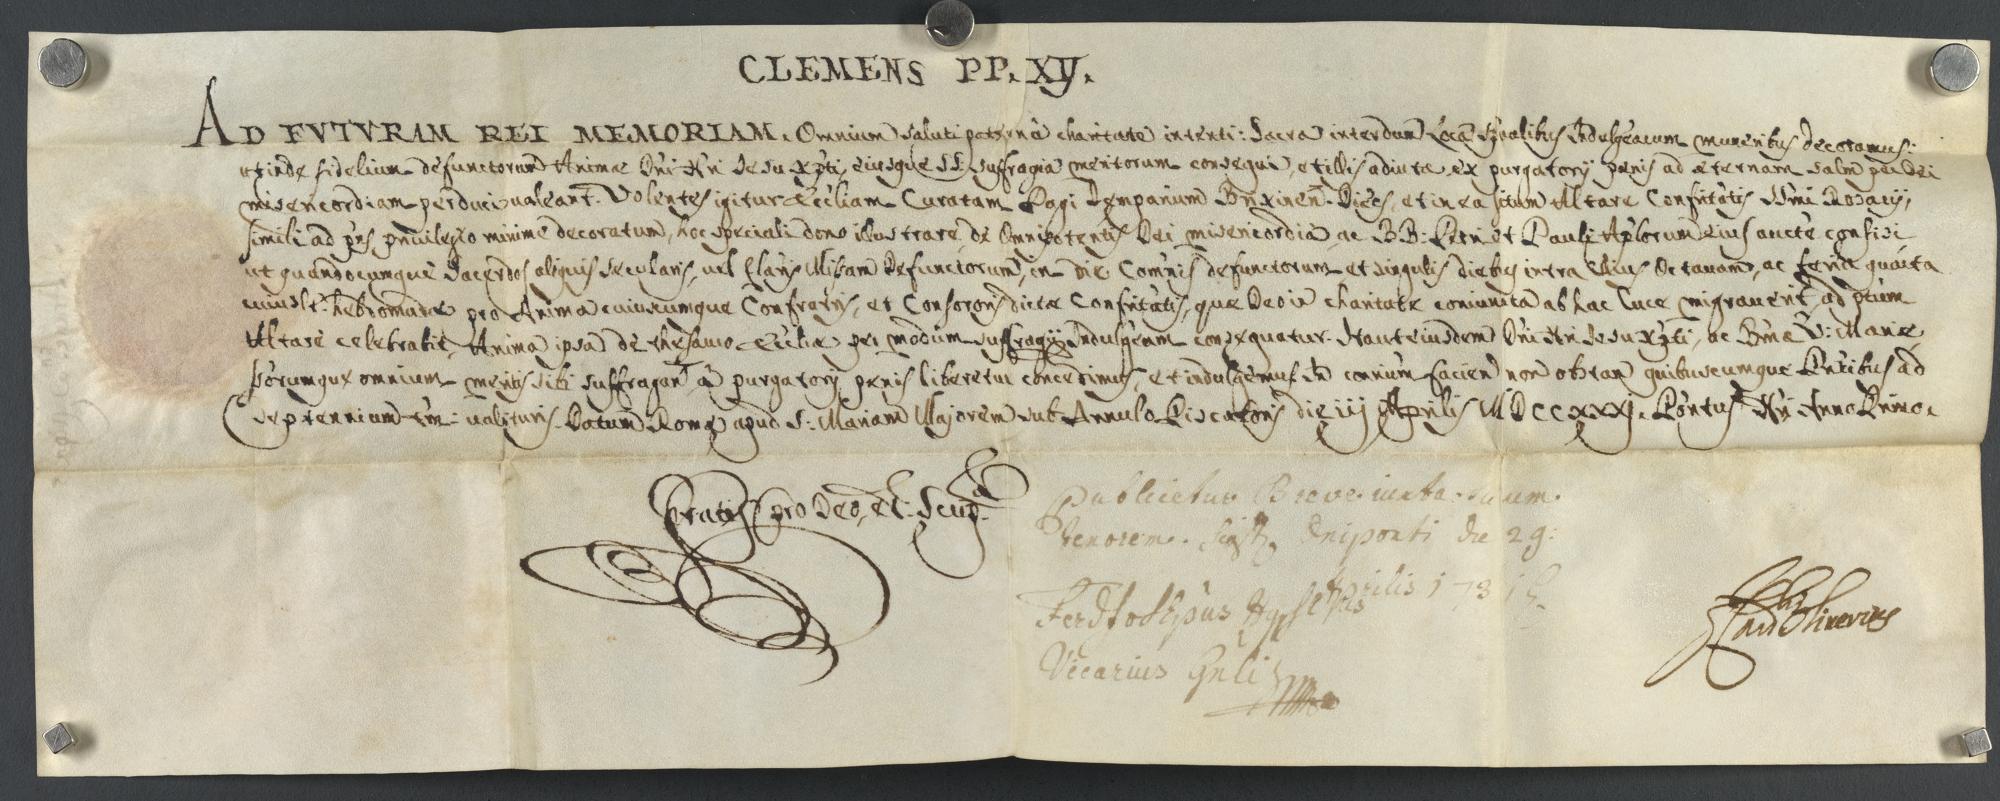 CLEMENS PP. XIJ.
AD FVTVRAM REI MEMORIAM. Omnium saluti paterna charitate intenti: sacra interdum Loca sp̃ralibus Indulgẽarum muneribus decoramus:
ut inde fidelium defunctorum Animæ Dñi Nr̃i Jesu Xp̃ti, eiusque SS. suffragia meritorum consequi, et illis adiutæ ex purgatorij pœnis ad æternam salm̃ per Dei
misericordiam perduci valeant. Volentes igitur Ecc̃liam Curatam Pagi Brixinen. Diecs̃, et in ea situm Altare Confrr̃itatis SSm̃i Rosarij,
simili ad pñs privilegio minime decoratum, hoc speciali dono illustrare, de Omnipotentis Dei misericordia, ac BB: Petri et Pauli Ap̃lorum eius aucte confisi
ut quandocumque Sacerdos aliquis secularis, vel Missam Defunctorum, in die Com̃nis defunctorum et singulis diebus intra illius Octavam, ac feria quarta
cuiuslt̃ hebromadæ pro Anima cuiuscumque Confratris, et Consororis dictæ Confrr̃itatis, quæ Deo in charitate coniuncta ab hac luce migraverit, ad p̃tum
Altare celebrabit, Anima ipsa de thesauro Ecc̃liæ per modum suffragij Indulg̃eam consequatur. Ita ut eiusdem Dñi Nr̃i Jesu Xp̃ti, ac Bm̃æ V: Mariæ
s̃torumque omnium meritis sibi suffragan̄t, à purgatorij pœnis liberetur concedimus, et indulgemus. In con̄rium facien non obstan quibuscumque Pñtibus ad
septennium tm̃: valituris. Datum Romæ apud S: Mariam Majorem sub Annulo Piscatoris die iij Aprilis MDCCXXXI. Pontus Nr̃i Anno Primo.
Gratis pro Deo, et Scrip̃
Publicetur Breve iuxta suum
tenorem. Sig. Oeniponti die 29:
Aprilis 1731
Vicarius Gñlis